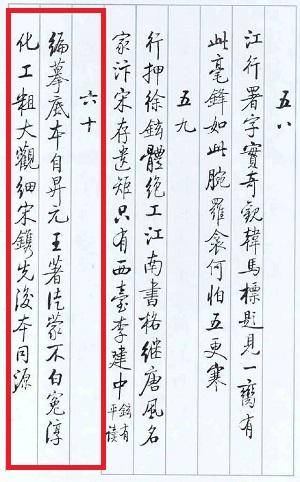 五八
江行署字實奇觀韓馬標題見一臠有
此毫鋒如此腕羅衾何怕五更寒
五九
行押徐鉉體絕工江南書格繼唐風名
家汴宋存遺矩只有西臺李建中 鉉有平讀
六十
編摹底本自昇元王著徒蒙不白冤淳
化工粗大觀細宋鐫先後本同源